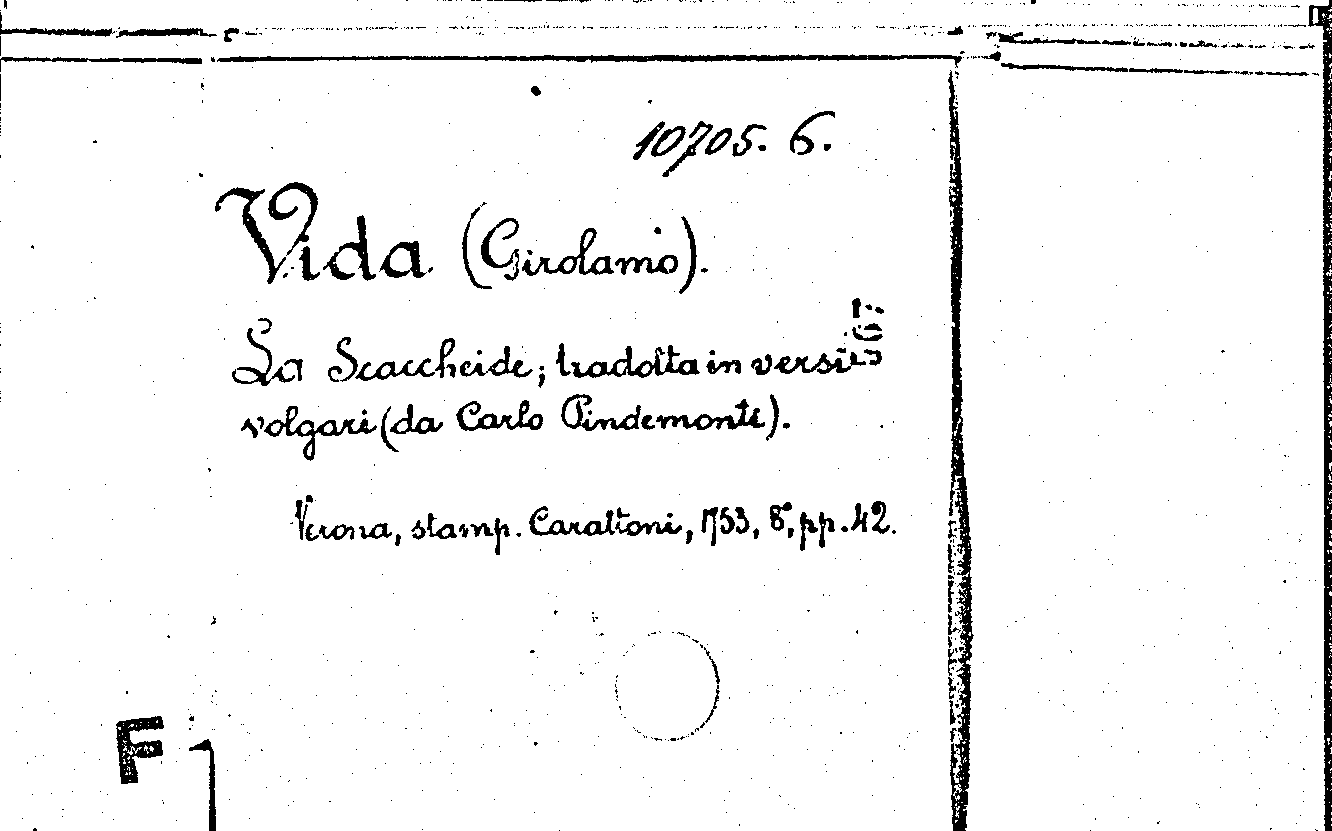 10705. 6.
Vida (Girolamo).
La Scaccheide; tradotta in versi
volgari (da Carlo Pindemonte).
Verona, stamp. Carattoni, 1753, 8°, pp. 42.
F